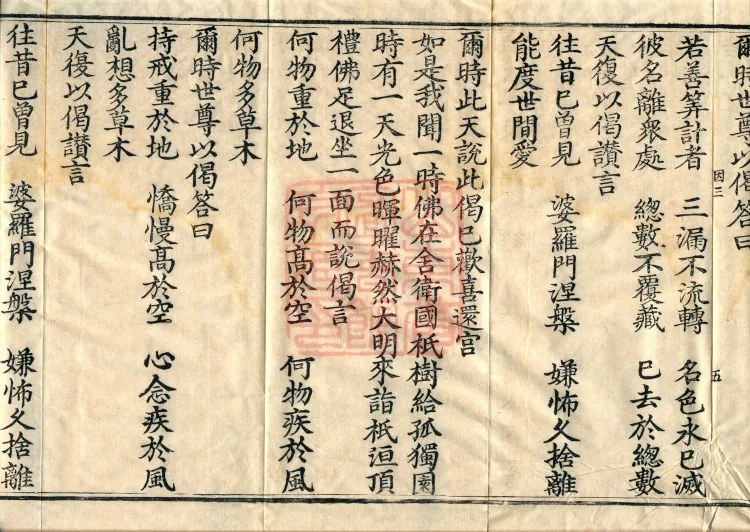 爾時世尊以偈答曰
因三
五
若善筭計者 三漏不流轉 名色永已滅
彼名離衆處 總數不覆藏 已去於總數
天復以偈讃言
往昔已曾見 婆羅門涅槃 嫌怖久捨離
能度世間愛
爾時此天說此偈已歡喜還宫
如是我聞一時佛在舍衛國祇樹給孤獨園
時有一天光色暉曜赫然大明來詣祇洹頂
禮佛足退坐一面而說偈言
何物重於地 何物髙於空 何物疾於風
何物多草木
爾時世尊以偈答曰
持戒重於地 憍慢髙於空 心念疾於風
亂想多草木
天復以偈讃言
往昔已曾見 婆羅門涅槃 嫌怖久捨離